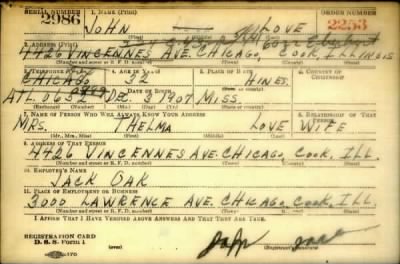 SERIAL NUMBER 1. NAME (Print) ORDER NUMBER
2986 JOHN LOVE 2253
2. ADDRESS (Print)
4426 VINCENNES AVE. CHICAGO, COOK, ILLINOIS
3. TELEPHONE 4. AGE IN YEARS 5. PLACE OF BIRTH 6. COUNTRY OF CITIZENSHIP
CHICAGO 32 HINES
DATE OF BIRTH
ATL. DEC. 1907 MISS.
7. NAME OF PERSON WHO WILL ALWAYS KNOW YOUR ADDRESS 8. RELATIONSHIP OF THAT PERSON
MRS. THELMA LOVE WIFE
(Mr., Mrs., Miss) (First) (Middle) (Last)
9. ADDRESS OF THAT PERSON
4426 VINCENNES AVE. CHICAGO COOK, ILL.
(Number and street or R. F. D. number) (Town) (County) (State)
10. EMPLOYER'S NAME
JACK OAK
11. PLACE OF EMPLOYMENT OR BUSINESS
3000 LAWRENCE AVE. CHICAGO, COOK, ILL.
(Number and street or R. F. D. number) (Town) (County) (State)
I AFFIRM THAT I HAVE VERIFIED ABOVE ANSWERS AND THAT THEY ARE TRUE.
REGISTRATION CARD
D. S. S. FORM 1 John